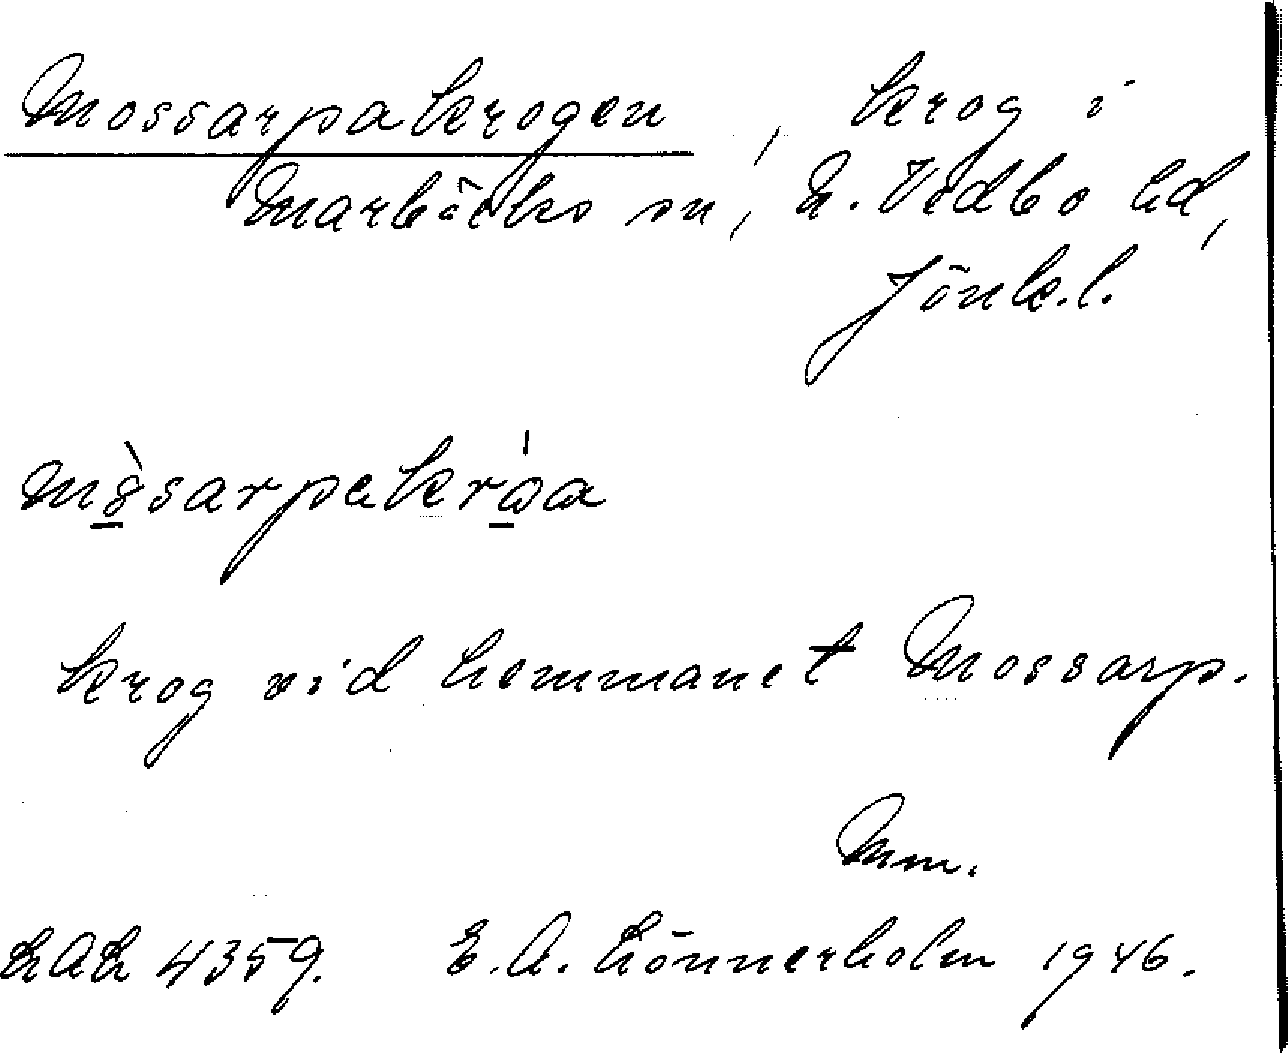 Mossarpakrogen, krog i
Marbäcks sn, N. Vedbo hd,
Jönk.l.
krog vid hemmanet Mossarp.
Mm.
LAL 4359. E.A. Lönnerholm 1946.